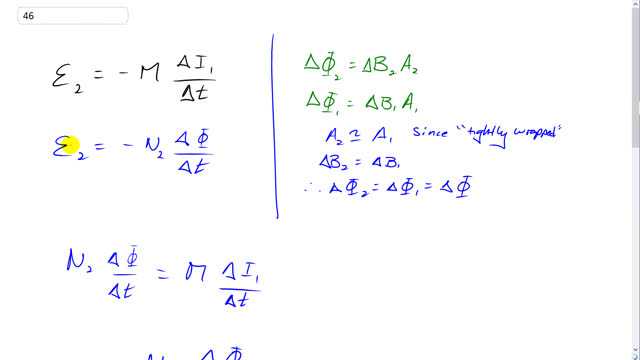 46
ℰ₂ = - M ΔI₁/Δt
ℰ₂ = - N₂ ΔΦ/Δt
ΔΦ₂ = ΔB₂ A₂
ΔΦ₁ = ΔB₁ A₁
A₂ ≃ A₁ since "tightly wrapped"
ΔB₂ = ΔB₁
∴ ΔΦ₂ = ΔΦ₁ = ΔΦ
N₂ ΔΦ/Δt = M ΔI₁/Δt